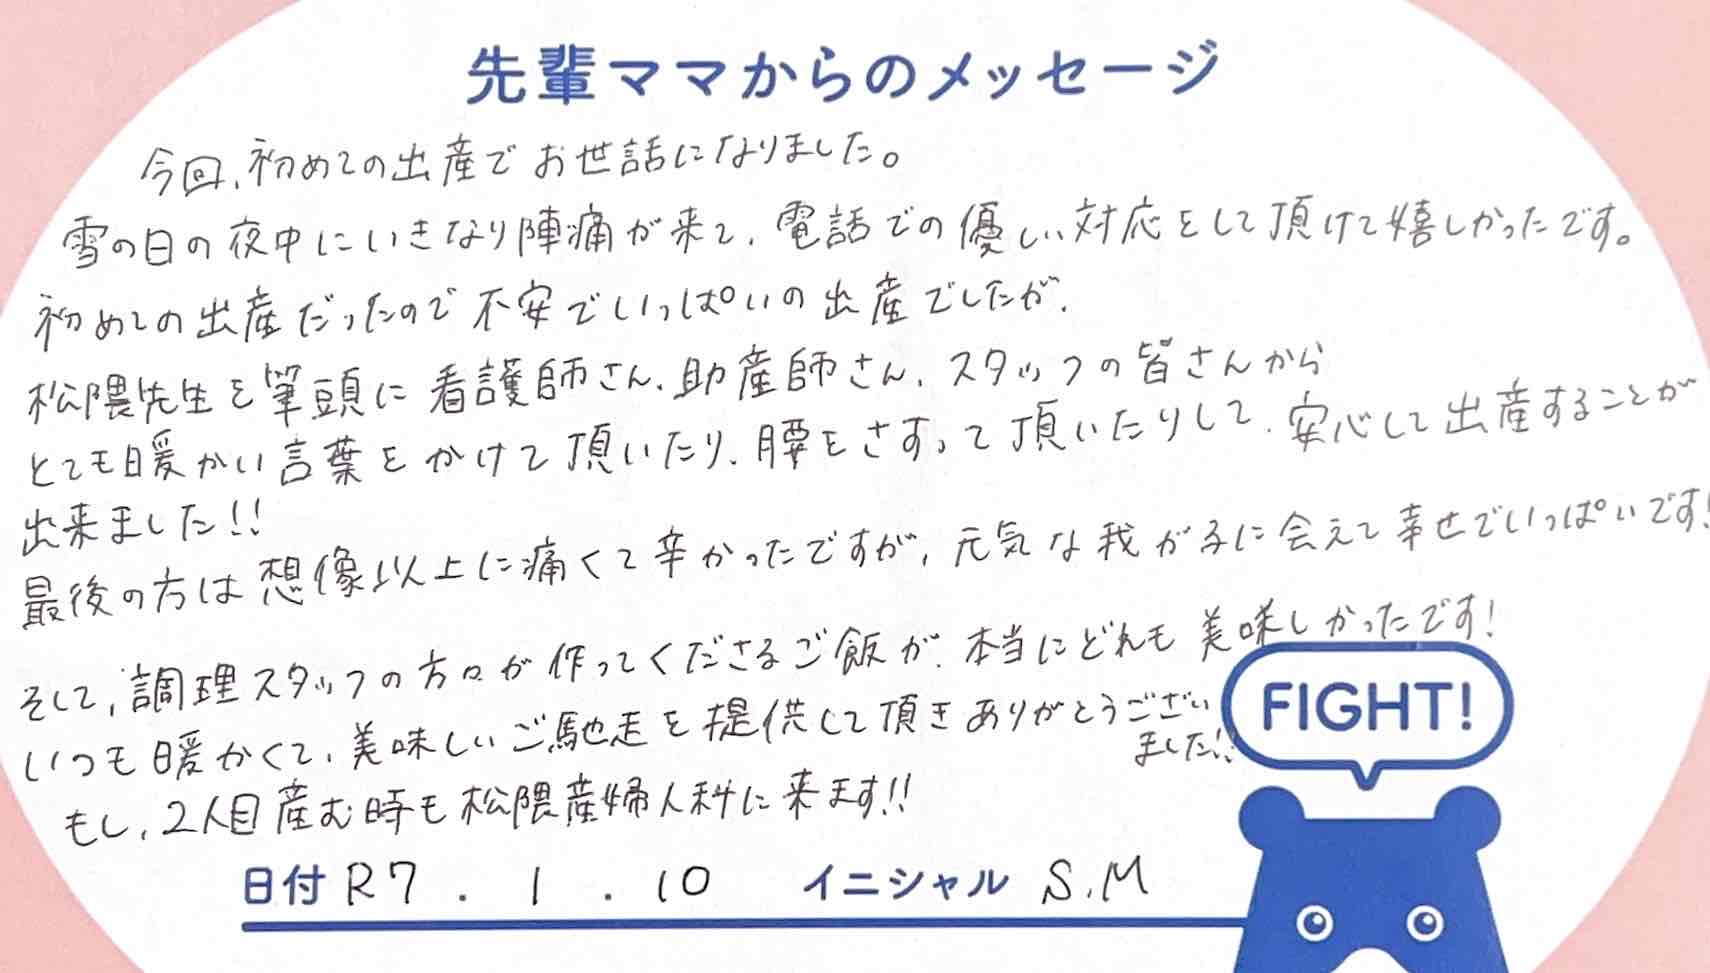 先輩ママからのメッセージ
今回、初めての出産でお世話になりました。
雪の日の夜中にいきなり陣痛が来て、電話での優しい対応をして頂けて嬉しかったです。
初めての出産だったので不安でいっぱいの出産でしたが、
松隈先生を筆頭に看護師さん、助産師さん、スタッフの皆さんから
とても暖かい言葉をかけて頂いたり、腰をさすって頂いたりして、安心して出産することが
出来ました!!
最後の方は想像以上に痛くて辛かったですが、元気な我が子に会えて幸せでいっぱいです!
そして、調理スタッフの方々が作ってくださるご飯が、本当にどれも美味しかったです!
いつも暖かくて、美味しいご馳走を提供して頂きありがとうござい
ました!!
もし、2人目産む時も松隈産婦人科に来ます!!
FIGHT!
日付 R7 . 1 . 10 イニシャル S.M